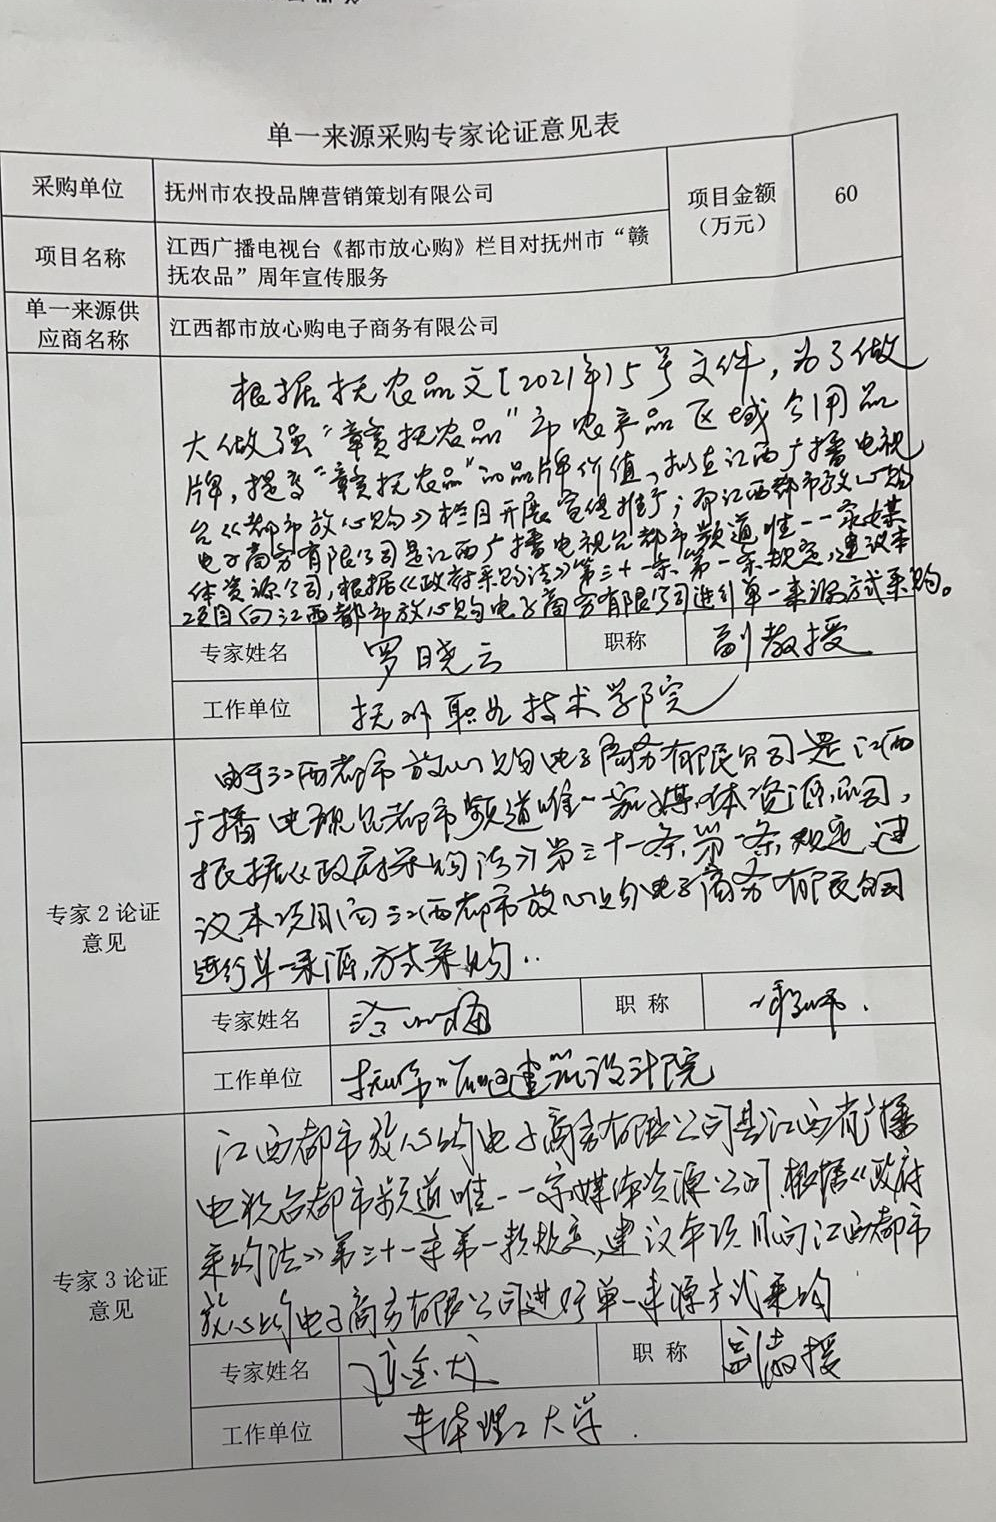 单一来源采购专家论证意见表
采购单位
抚州市农投品牌营销策划有限公司
项目金额
（万元）
60
项目名称
江西广播电视台《都市放心购》栏目对抚州市“赣
抚农品”周年宣传服务
单一来源供
应商名称
江西都市放心购电子商务有限公司
根据抚农品文[2021年]5号文件，为了做
大做强“赣抚农品”市农产品区域公用品
牌，提高“赣抚农品”的品牌价值，拟在江西广播电视
台《都市放心购》栏目开展宣传推广；而江西都市放心购
电子商务有限公司是江西广播电视台都市频道唯一一家媒
体资源公司，根据《政府采购法》第三十一条、第一条规定，建议本
项目向江西都市放心购电子商务有限公司进行单一来源方式采购。
专家姓名
罗晓云
职称
副教授
工作单位
抚州职业技术学院
专家2论证
意见
由于江西都市放心购电子商务有限公司是江西
广播电视台都市频道唯一一家媒体资源公司，
根据《政府采购法》第三十一条、第一条规定，建
议本项目向江西都市放心购电子商务有限公司
进行单一来源方式采购..
专家姓名
职称
工作单位
建筑设计院
专家3论证
意见
江西都市放心购电子商务有限公司是江西省广播
电视台都市频道唯一一家媒体资源公司，根据《政府
采购法》第三十一条第一款规定，建议本项目向江西都市
放心购电子商务有限公司进行单一来源方式采购
专家姓名
职称
副教授
工作单位
东华理工大学.